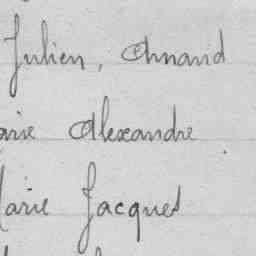 Julien, Armand
arie Alexandre
Marie Jacques